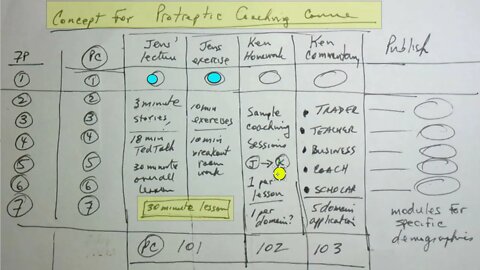 Concept For Protreptic Coaching Course
7P
PC
Jens' lecture
Jens exercise
Ken Homework
Ken Commentary
Publish
1
1
2
2
3
3
4
4
5
5
6
6
7
7
3 minute
stories,
18 min
TedTalk
30 minute
overall
lesson
30 minute lesson
10 min
exercises
10 min
breakout
room
work
Sample
coaching
sessions
I → K
1 per
lesson
1 per
domain?
• TRADER
• TEACHER
• BUSINESS
• COACH
• SCHOLAR
5 domain
applications
modules for
specific
demographics
PC 101
102
103